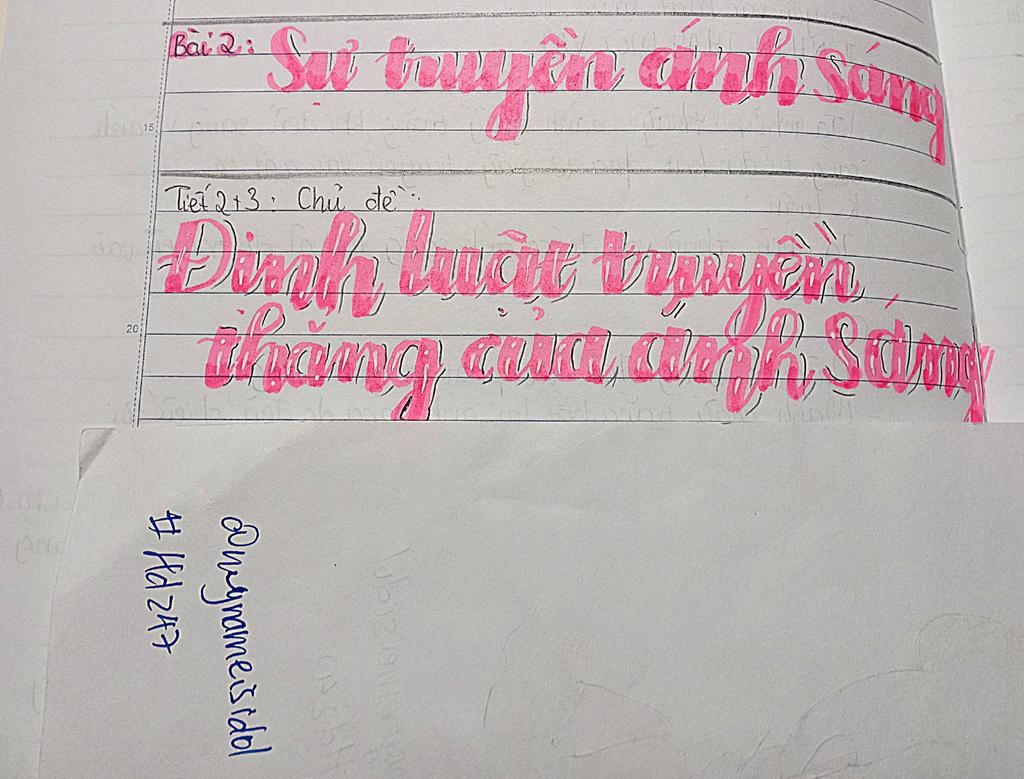 Bài 2: Sự truyền ánh sáng
15
Tiết 2+3: Chủ đề:
Định luật truyền
20
thẳng của ánh sáng
@mynameisidol
#Hd247